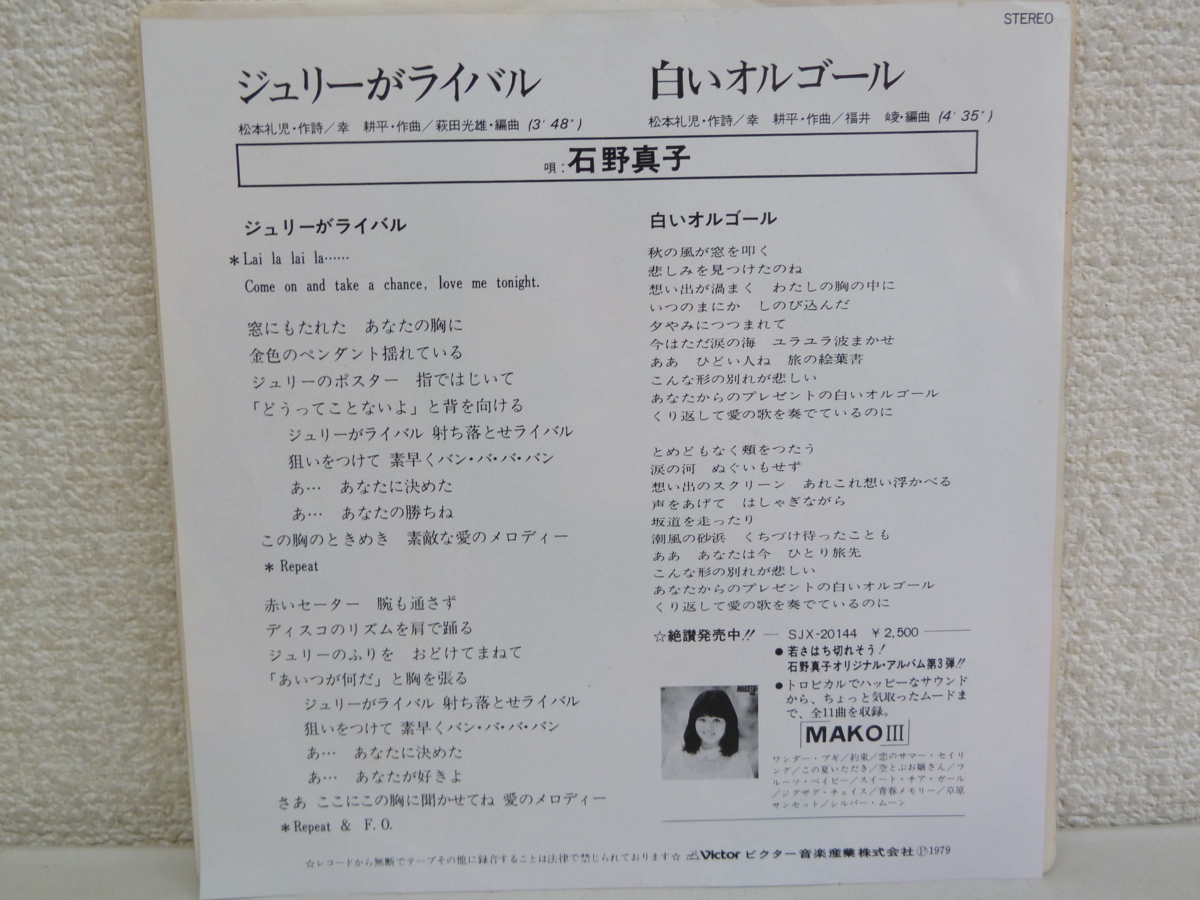 STEREO
ジュリーがライバル
松本礼児・作詩／幸　耕平・作曲／萩田光雄・編曲 (3′48″)
白いオルゴール
松本礼児・作詩／幸　耕平・作曲／福井　崚・編曲 (4′35″)
唄：石野真子
ジュリーがライバル
＊Lai la lai la……
Come on and take a chance, love me tonight.
窓にもたれた　あなたの胸に
金色のペンダント揺れている
ジュリーのポスター　指ではじいて
「どうってことないよ」と背を向ける
ジュリーがライバル 射ち落とせライバル
狙いをつけて 素早くバン・バ・バ・バン
あ…　あなたに決めた
あ…　あなたの勝ちね
この胸のときめき　素敵な愛のメロディー
＊Repeat
赤いセーター　腕も通さず
ディスコのリズムを肩で踊る
ジュリーのふりを　おどけてまねて
「あいつが何だ」と胸を張る
ジュリーがライバル 射ち落とせライバル
狙いをつけて 素早くバン・バ・バ・バン
あ…　あなたに決めた
あ…　あなたが好きよ
さあ ここにこの胸に聞かせてね 愛のメロディー
＊Repeat & F.O.
白いオルゴール
秋の風が窓を叩く
悲しみを見つけたのね
想い出が渦まく　わたしの胸の中に
いつのまにか　しのび込んだ
夕やみにつつまれて
今はただ涙の海　ユラユラ波まかせ
ああ　ひどい人ね　旅の絵葉書
こんな形の別れが悲しい
あなたからのプレゼントの白いオルゴール
くり返して愛の歌を奏でているのに
とめどもなく頬をつたう
涙の河　ぬぐいもせず
想い出のスクリーン　あれこれ想い浮かべる
声をあげて　はしゃぎながら
坂道を走ったり
潮風の砂浜　くちづけ待ったことも
ああ　あなたは今　ひとり旅先
こんな形の別れが悲しい
あなたからのプレゼントの白いオルゴール
くり返して愛の歌を奏でているのに
☆絶讃発売中!! — SJX-20144　¥2,500
●若さはち切れそう！
石野真子オリジナル・アルバム第3弾!!
●トロピカルでハッピーなサウンド
から、ちょっと気取ったムードま
で、全11曲を収録。
MAKO III
ワンダー・ブギ／約束／恋のサマー・セイリ
ング／この夏いただき／空とぶお嬢さん／フ
ルーツ・ベイビー／スイート・チア・ガール
／ジグザグ・チェイス／青春メモリー／草原
サンセット／シルバー・ムーン
☆レコードから無断でテープその他に録音することは法律で禁じられております☆ Victor ビクター音楽産業株式会社 Ⓟ1979